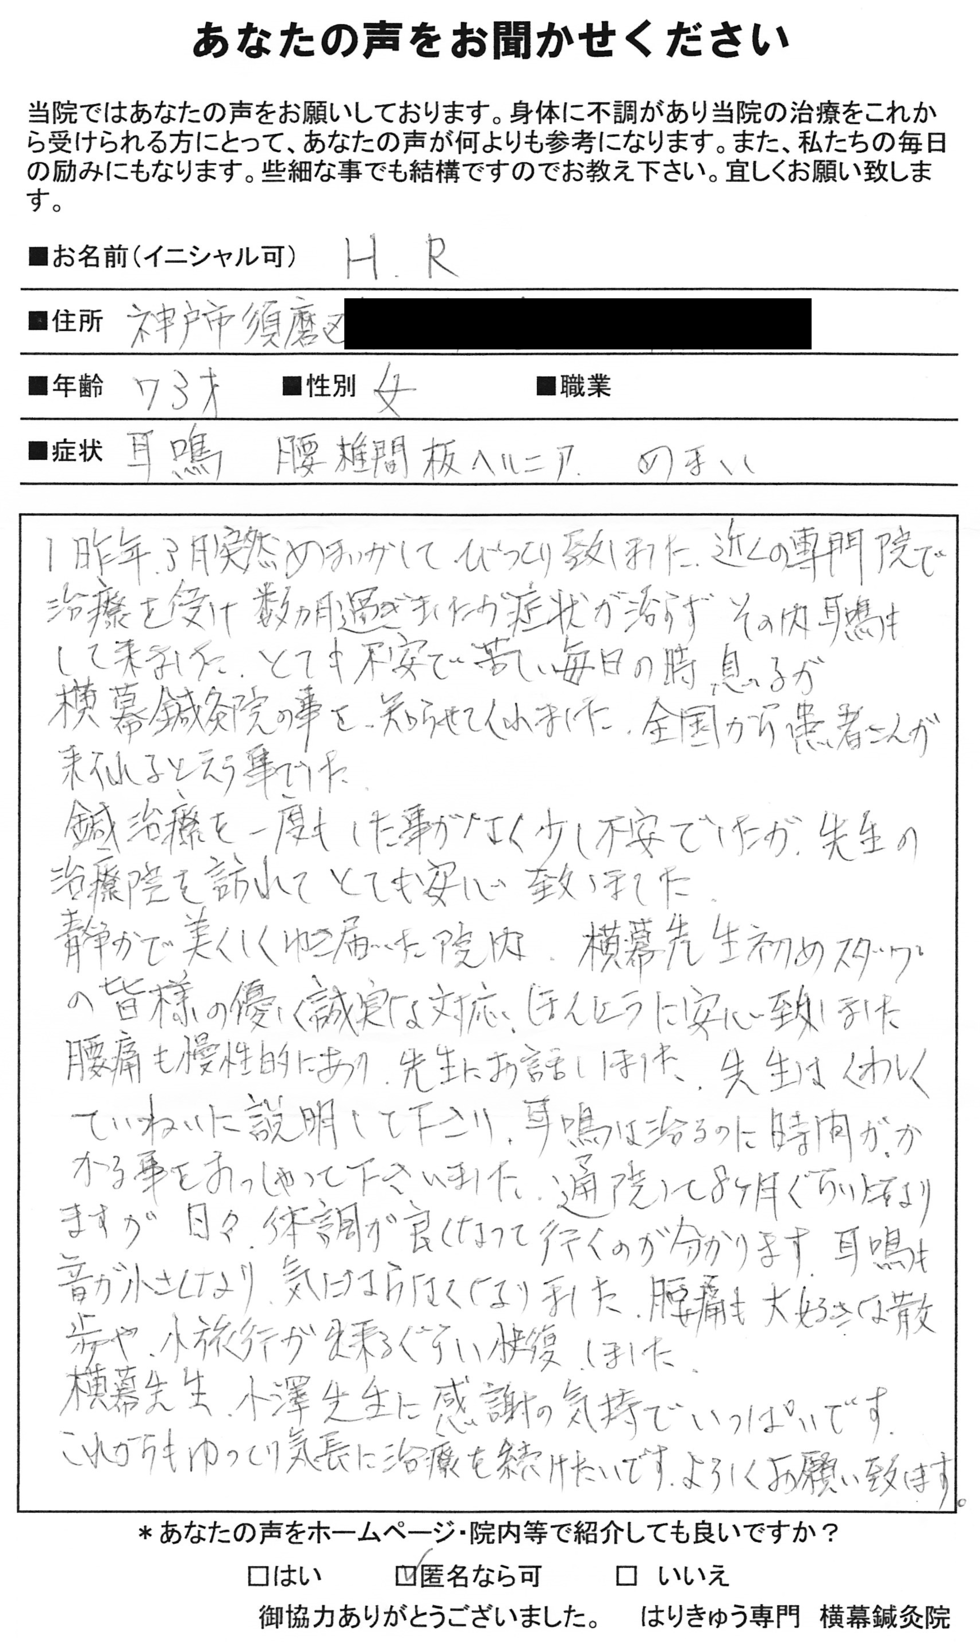 あなたの声をお聞かせください
当院ではあなたの声をお願いしております。身体に不調があり当院の治療をこれか
ら受けられる方にとって、あなたの声が何よりも参考になります。また、私たちの毎日
の励みにもなります。些細な事でも結構ですのでお教え下さい。宜しくお願い致しま
す。
■お名前(イニシャル可) H.R
■住所 神戸市須磨区
■年齢 73才 ■性別 女 ■職業
■症状 耳鳴 腰椎間板ヘルニア. めまい
1昨年.3月突然めまいがして びっくり致しました. 近くの専門院で
治療を受け 数ヵ月過ぎましたが症状が治らず その内耳鳴も
して来ました. とても不安で苦しい毎日の時 息るが
横幕鍼灸院の事を.知らせてくれました.全国から患者さんが
来られるという事でした
鍼治療を一度もした事がなく少し不安でしたが.先生の
治療院を訪れて とても安心 致しました.
静かで美くしくゆき届いた院内. 横幕先生初めスタッフ
の皆様の優しく誠実な対応、ほんとうに安心致しました
腰痛も慢性的にあり.先生にお話しました. 先生はくわしく
ていねいに説明して下さり.耳鳴は治るのに時間が.か
かる事をおっしゃって下さいました.通院して8ヶ月ぐらいになり
ますが 日々.体調が良くなって行くのが分かります.耳鳴も
音が小さくなり.気にならなくなりました.腰痛も大好きな散
歩や.小旅行が出来るぐらい快復しました.
横幕先生.小澤先生に感謝の気持でいっぱいです.
これからもゆっくり気長に治療を続けたいです.よろしくお願い致します。
*あなたの声をホームページ・院内等で紹介しても良いですか?
□はい ☑匿名なら可 □ いいえ
御協力ありがとうございました。 はりきゅう専門 横幕鍼灸院